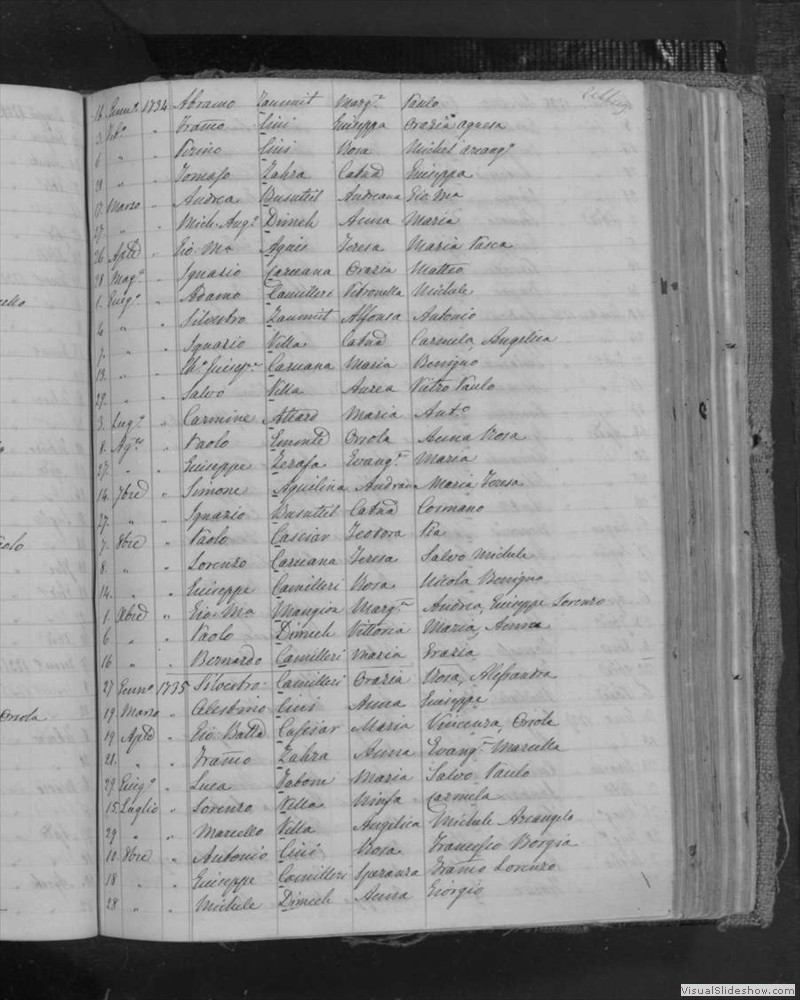 16 Genn.o 1734 Abramo Zammit Marg.a Paulo
3 Feb.o " Franc.o Cini Giuseppa Orazia Agnesa
6 " " Pirino Cini Rosa Michel'arcang.o
28 " " Tomaso Zahra Cat.na Giuseppa
17 Marzo " Andrea Busuttil Andreana Gio. M.a
27 " " Mich. Ang.o Dimech Anna Maria
26 Aple " Gio. M.a Agius Teresa Maria Pasca
28 Mag.o " Ignazio Caruana Orazia Matteo
1 Giug.o " Adamo Camilleri Petronella Michele
4 " " Silvestro Zammit Alfonsa Antonio
7 " " Ignazio Vella Cat.na Carmela, Angelica
13 " " Giusep.e Caruana Maria Benigno
29 " " Salvo Vella Aurea Pietro Paulo
3 Lug.o " Carmine Attard Maria Ant.o
8 Ag.to " Paolo Oriola Anna Rosa
27 " " Giuseppe Zerafa Evang.a Maria
14 7bre " Simone Aquilina Andreana Maria Teresa
27 " " Ignazio Busuttil Cat.na Cosmano
7 8bre " Paolo Casciar Teodora Pia
8 " " Lorenzo Caruana Teresa Salvo Michele
14 " " Giuseppe Camilleri Rosa Nicola Benigno
1 Xbre " Gio. M.a Mangion Marg.a Andrea, Giuseppe Lorenzo
6 " " Paolo Dimech Vittoria Maria, Anna
16 " " Bernardo Camilleri Maria Grazia
27 Genn.o 1735 Silvestro Camilleri Orazia Rosa, Alessandra
19 Marzo " Celestino Cini Anna Giuseppe
19 Aple " Gio. Batta Casciar Maria Vincenza, Oriola
21 " " Franc.o Zahra Anna Evang.a Marcella
29 Giug.o " Luca Tabone Maria Salvo Paulo
15 Luglio " Lorenzo Vella Ninfa Carmela
29 " " Marcello Vella Angelica Michele Arcangelo
10 8bre " Antonio Cini Rosa Francesco Borgia
18 " " Giuseppe Camilleri Speranza Franc.o Lorenzo
28 " " Michele Dimech Anna Giorgio
Oriola
VisualSlideshow.com